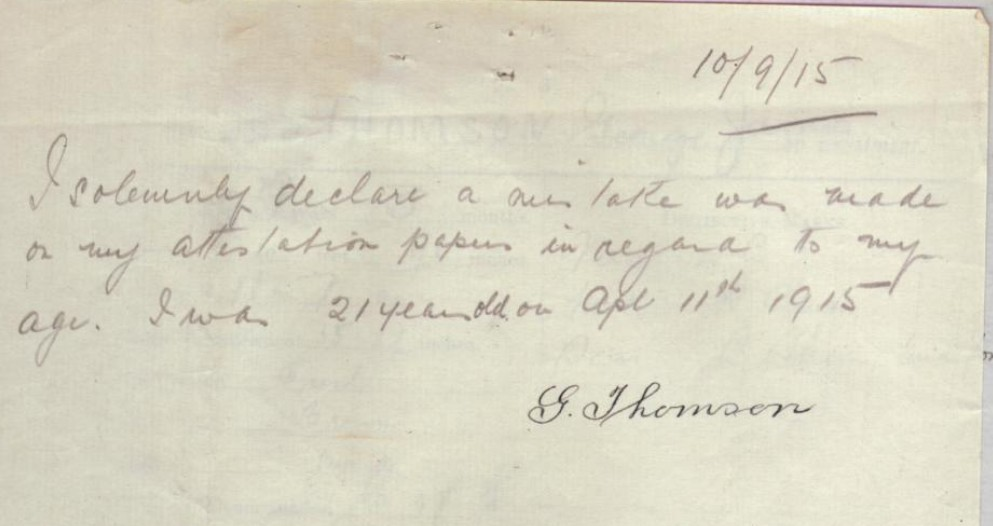 10/9/15
I solemnly declare a mistake was made
on my attestation papers in regard to my
age. I was 21 years old on Apl 11th 1915
G. Thomson